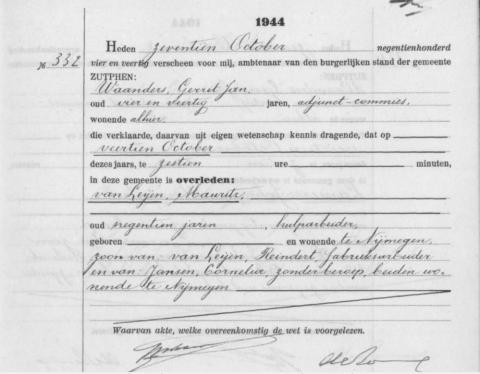 1944
Heden zeventien October negentienhonderd
№ 332 vier en veertig verscheen voor mij, ambtenaar van den burgerlijken stand der gemeente
ZUTPHEN:
Waanders, Gerret Jan,
oud vier en veertig jaren, adjunct-commies,
wonende alhier
die verklaarde, daarvan uit eigen wetenschap kennis dragende, dat op
veertien October
dezes jaars, te zestien ure minuten,
in deze gemeente is overleden:
van Leijen, Maurits,
oud negentien jaren, hulparbeider,
geboren en wonende te Nijmegen,
zoon van van Leijen, Reindert, fabrieksarbeider
en van Jansen, Cornelia, zonder beroep, beiden wo-
nende te Nijmegen
Waarvan akte, welke overeenkomstig de wet is voorgelezen.